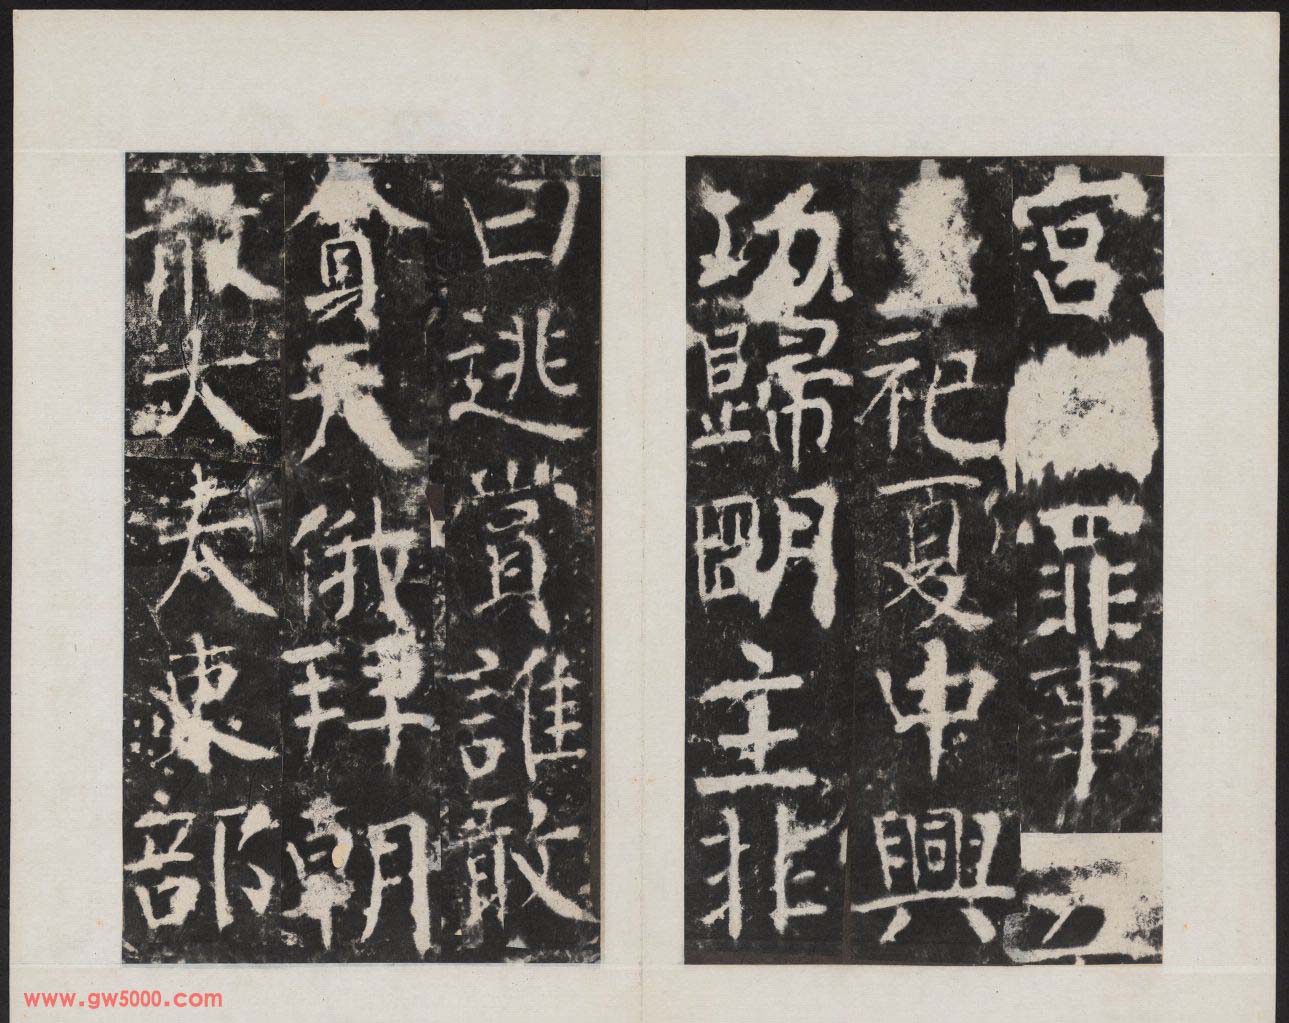 宮罪事
祀夏中興
功歸明主非
曰逃賞誰敢
貪天俄拜朝
散大夫吏部
www.gw5000.com